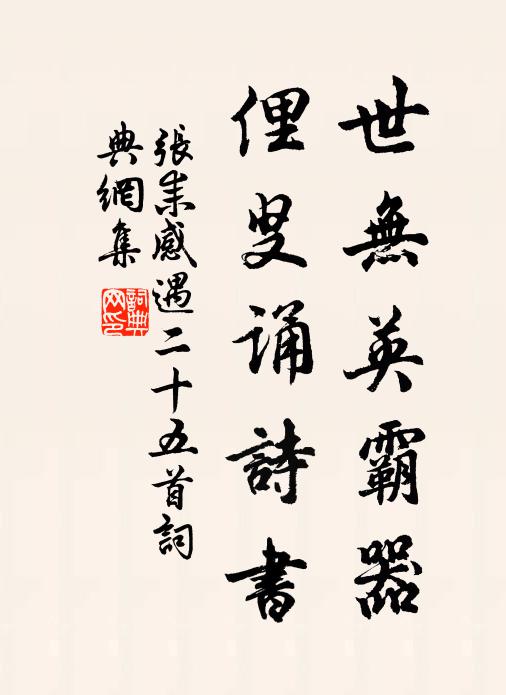 世無英霸器
俚叟誦詩書
張耒感遇二十五首詞
典網集
詞典
網印